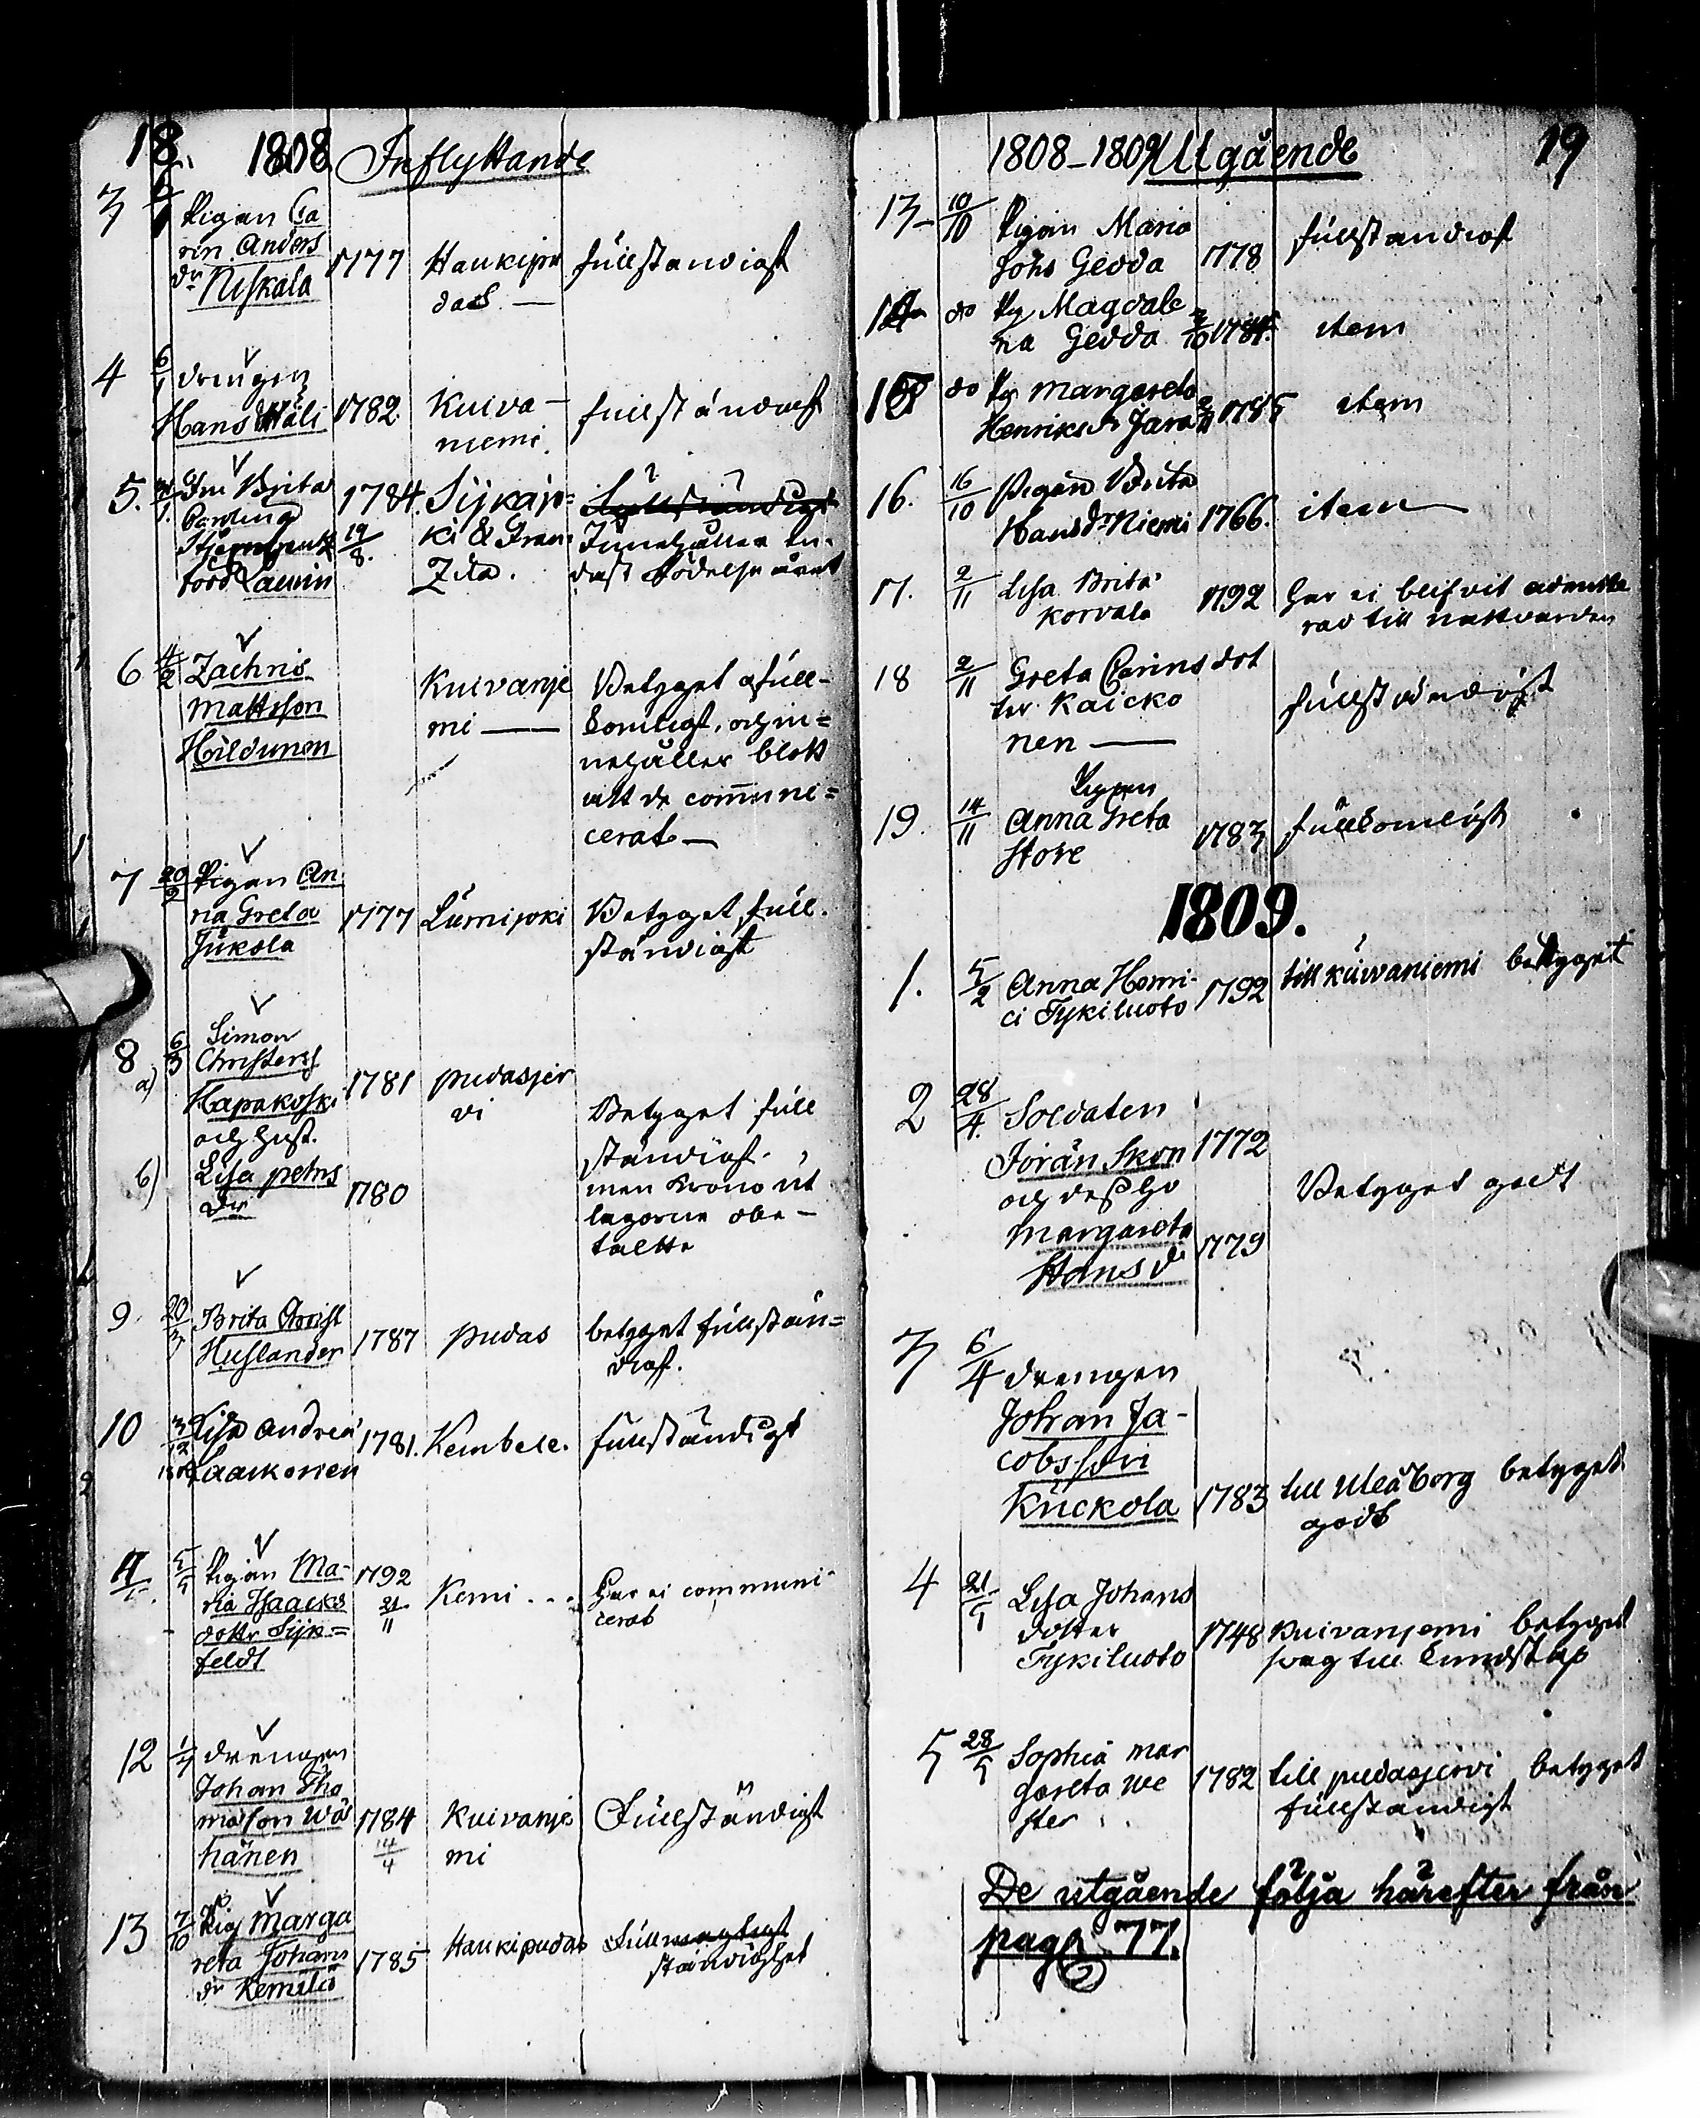 18. 1808 Inflyttande
3 Pigan Ca
rin Anders
dr Niskala 1777 Haukipu
das — fullständigt
4 6/1 drengen
Hans Wäli 1782. Kuiva-
niemi. fullständigt
5. Brita
1784 19/8. Sijkajo=
ki & Fran=
zila. fullständigt
Innehåller en-
dast födelse året
Lauin
6 4/2 Zachris
Mattsson
Hildunen
Kuivanje
mi —
Betyget ofull-
komligt, och in=
nehåller blott
att de communi=
cerat —
7 20/2 Pigan An
na Greta
Jukola 1777 Lumijoki Betyget full-
ständigt
8 6/3
a) Simon
Christers
Hapakoski
och hust.
1781 pudasjer
vi
b) Lisa petrs
dr 1780
Betyget full
ständigt.
men Krono ut
lagorne obe-
talte
9. 20/3 Brita Christ
Huslander 1787 pudas betyget fullstän=
digt.
10 3/12 Lisa Andrea
Laakonen 1781. Kembele. fullständigt
5/5 Pigan Ma-
ria Isaacks
dottr Sijk=
feldt 1792
21/11 Kemi . . . har ei communi-
cerat
12 1/7 drengen
Johan Tho
masson Wä
hänen 1784
14/4 Kuivanje
mi Fullständigt
13 7/10 Pig Marga
reta Johans
dr Kemilä 1785 Haukipudas Full
ständighet
1808-1809 Utgående 19
13- 10/10 Pigan Maria
Johs Gedda 1778 fullständigt
14 do Pig Magdale
na Gedda 1784. item
15 do Pig Margareta
Henriksdr Jara 1785 item
16. 16/10 Pigan Brita
Hansdr Niemi 1766. item
17. 2/11 Lisa Brita
Korvala 1792 har ei blifvit admitte
rad till nattvarden
18 2/11 Greta Carinsdot
ter Kaicko
nen — fullständigt
19. 14/11 Pigan
Anna Greta
Store 1783 fullkomligt
1809.
1. 5/2 Anna Henri-
ci Tykiluoto 1792 till Kuivaniemi betyget
2 28/4. Soldaten
Jöran Skon 1772
och dess hu
Margareta
Hansdr 1779
Betyget godt
3 6/4 drengen
Johan Ja-
cobsson
Kuckola 1783 till Uleåborg betyget
godt
4 21/5 Lisa Johans
dotter
Tykiluoto 1748 Kuivanjemi betyget
svag till kundskap
5 28/5 Sophia Mar
gareta We
ster . . 1782 till pudasjervi betyget
fullständigt
De utgående följa härefter från
pag: 77.